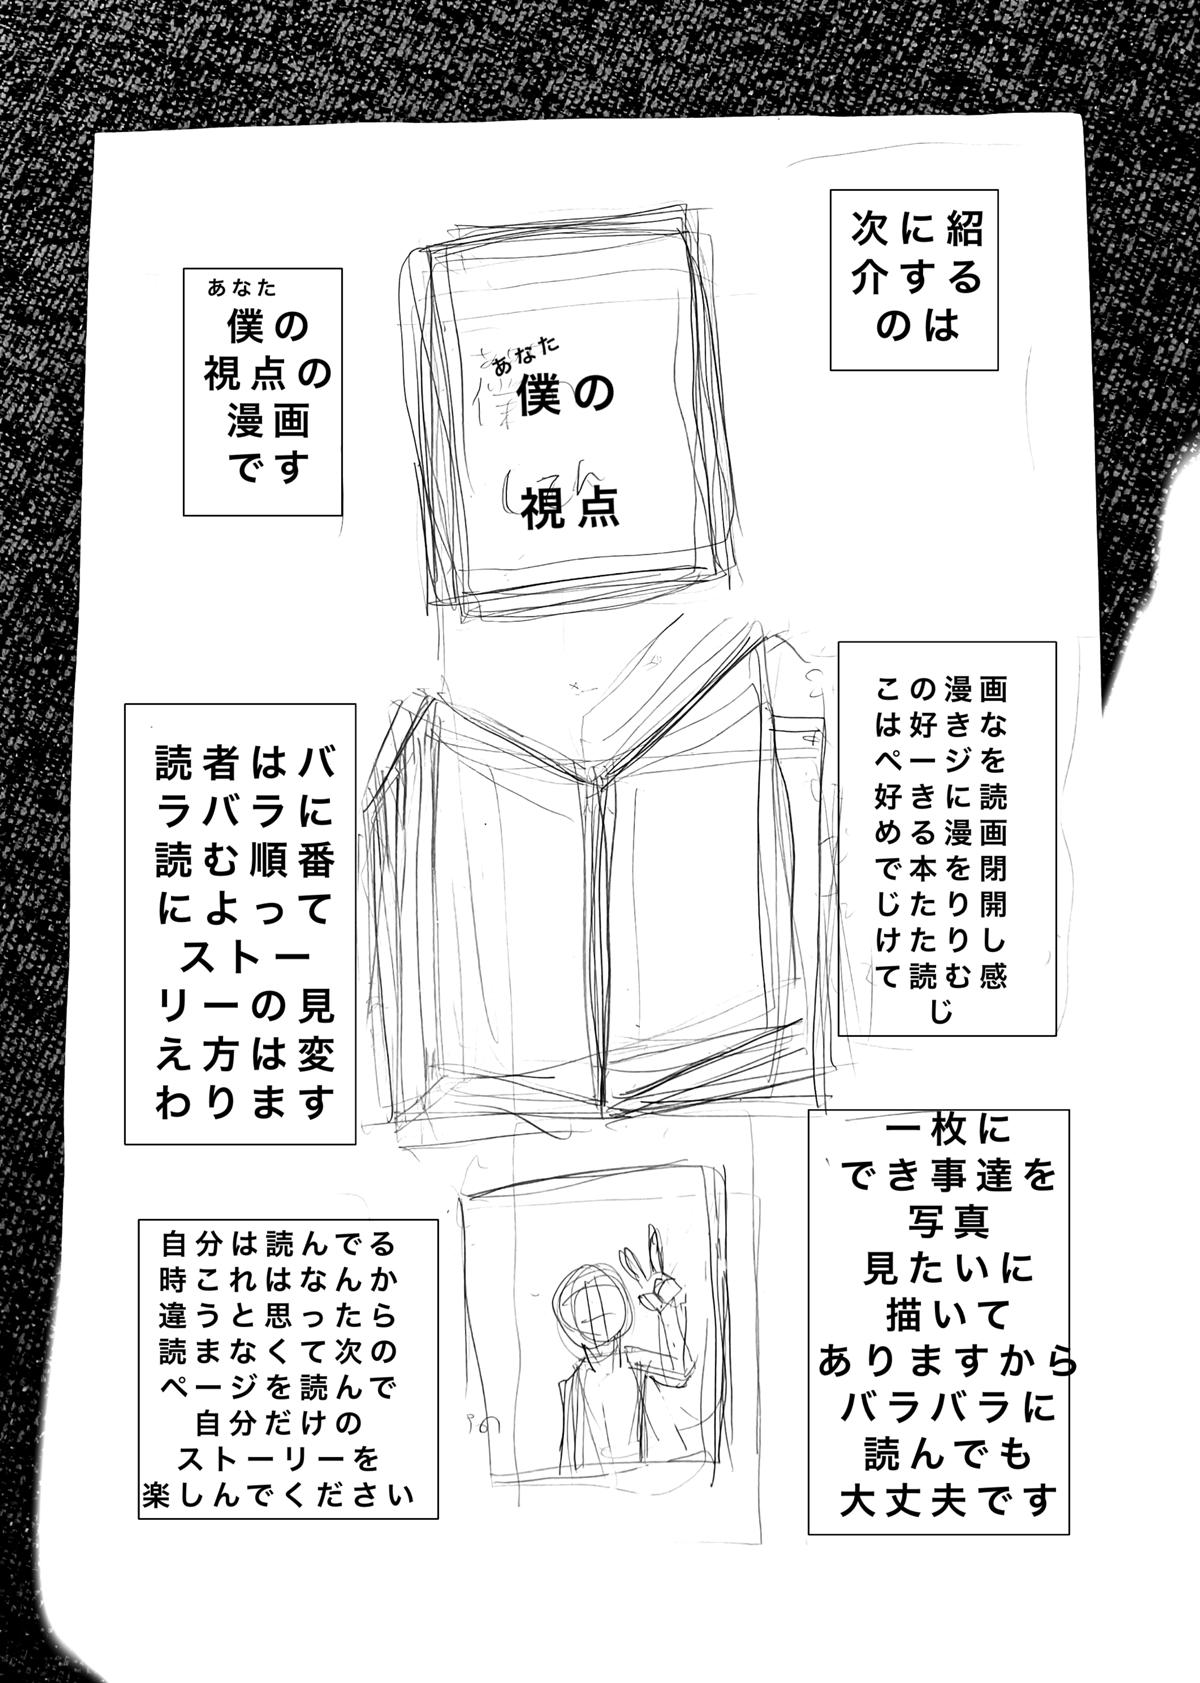 次に紹
介する
のは
あなた
僕の
視点
あなた
僕の
視点の
漫画
です
この漫画
は好きな
ページを
好きに読
める漫画
で本を閉
じたり開
けたりし
て読む感
じ
読者はバ
ラバラに
読む順番
によって
ストー
リーの見
え方は変
わります
一枚に
でき事達を
写真
見たいに
描いて
ありますから
バラバラに
読んでも
大丈夫です
自分は読んでる
時これはなんか
違うと思ったら
読まなくて次の
ページを読んで
自分だけの
ストーリーを
楽しんでください